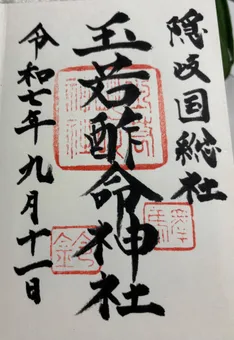 隠岐国総社
玉若酢命神社
令和七年九月十一日
駅
鈴